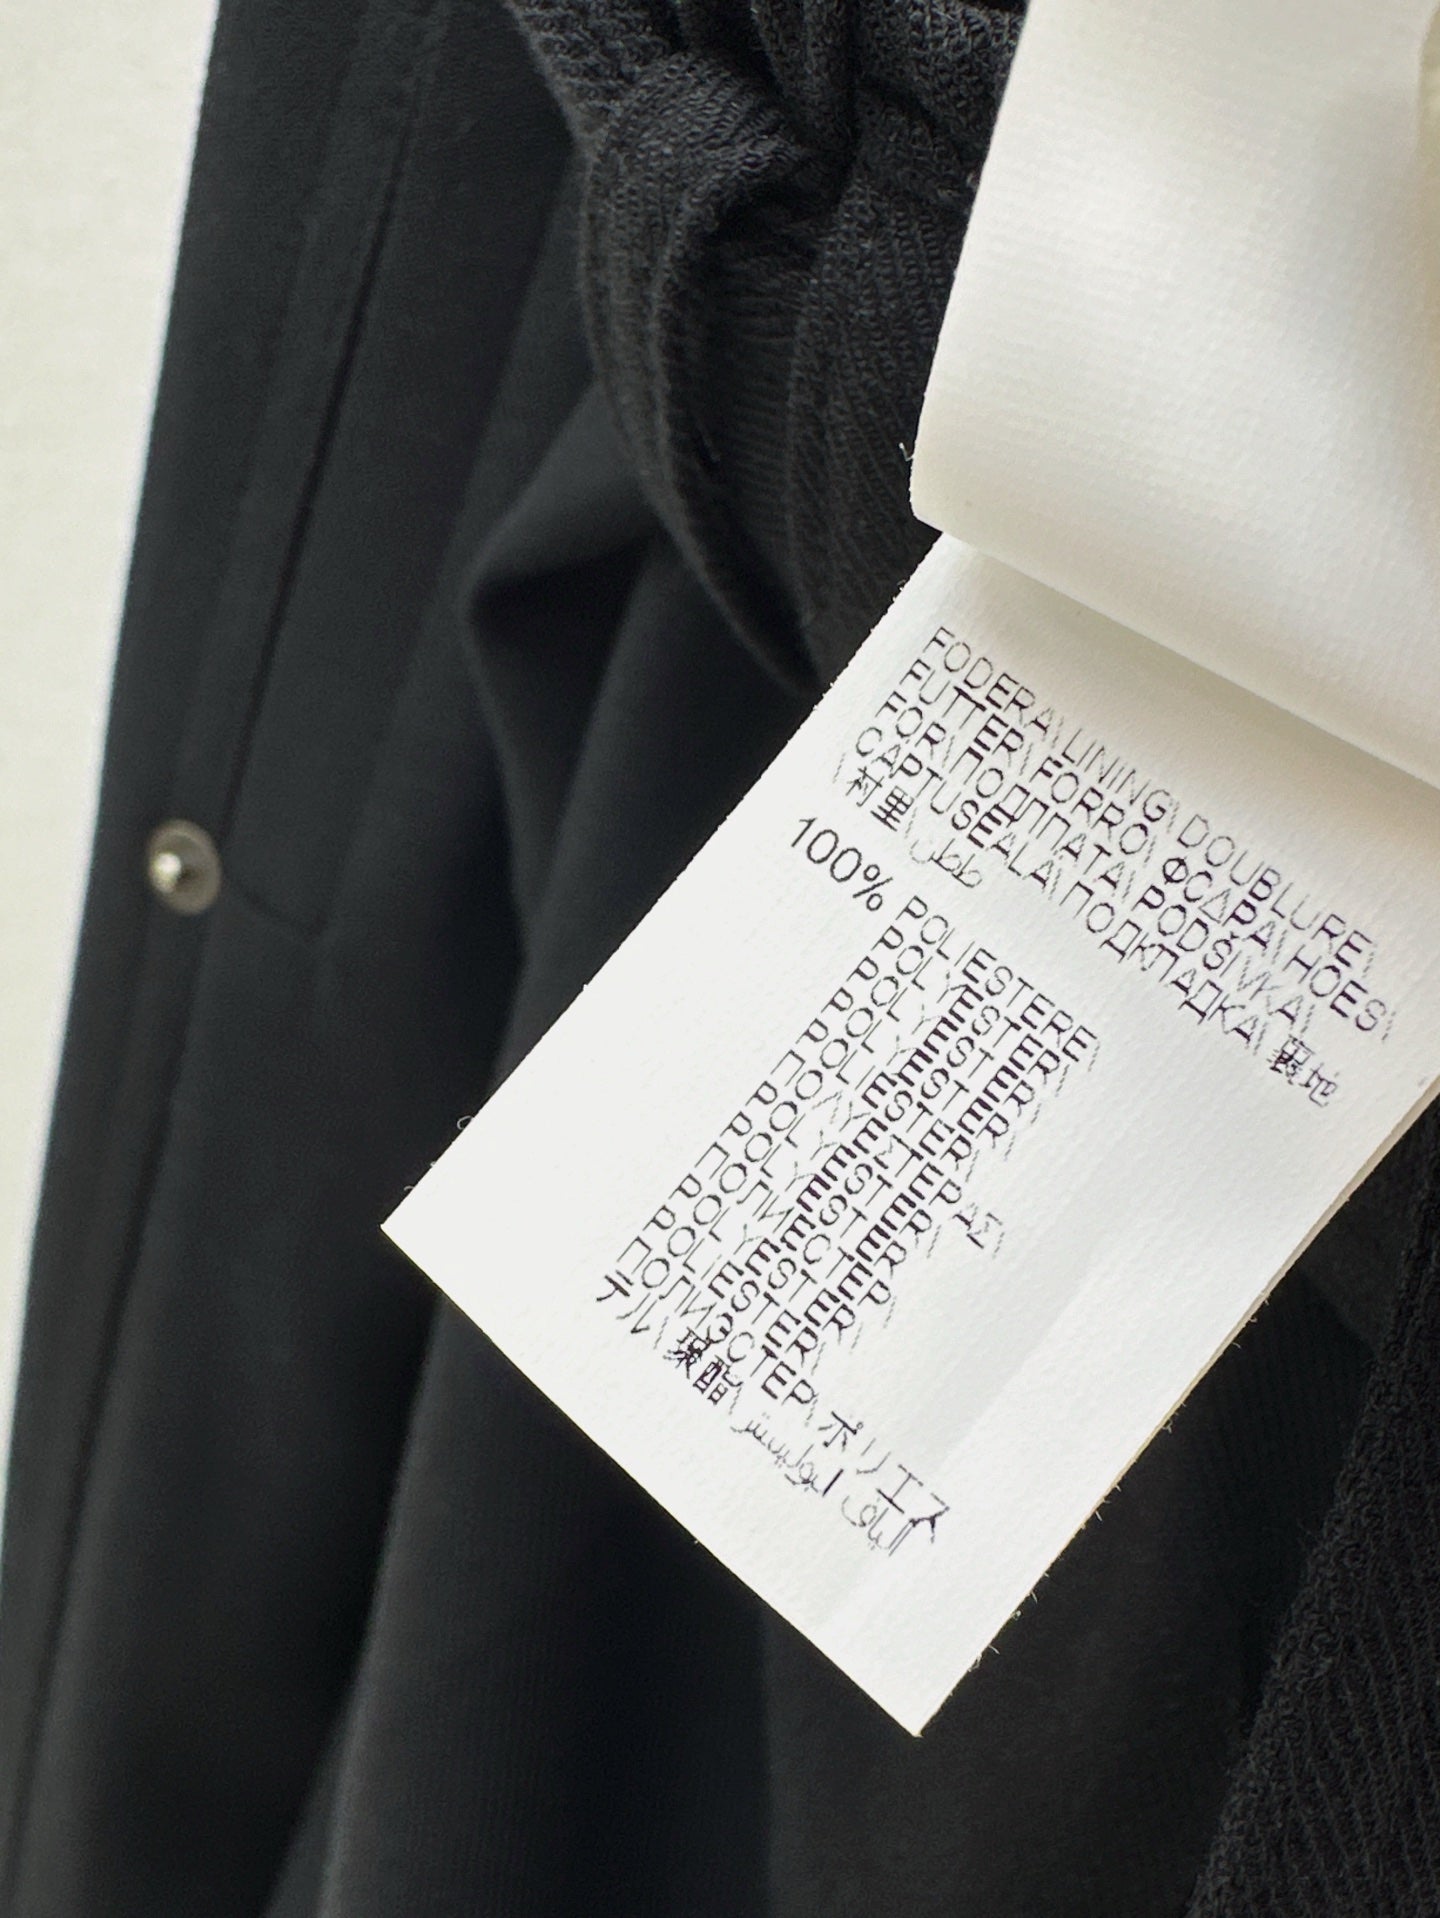 FODERA\ LINING\ DOUBLURE\
FUTTER\ FORRO\ ΦΟΔΡΑ\ HOES\
FOR\ ПОДПЛАТА\ PODŠIVKA\
CAPTUSEALA\ ПОДКЛАДКА\ 裏地
\衬里\ بطان
100% POLIESTERE\
POLYESTER\
POLYESTER\
POLYESTER\
POLIESTER\
ΠΟΛΥΕΣΤΕΡΑΣ\
POLYESTER\
POLYESTER\
ПОЛИЕСТЕР\
POLYESTER\
POLIESTER\
ПОЛИЭСТЕР\ ポリエス
テル\ 聚酯\ ألياف البوليستر